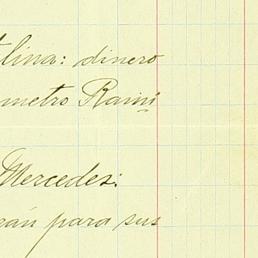 lina: dinero
metro Rami
Mercedes:
rán para sus